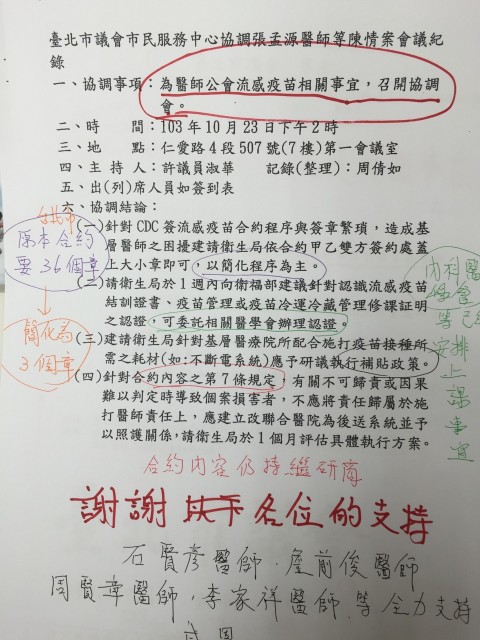 臺北市議會市民服務中心協調張孟源醫師等陳情案會議紀
錄
一、協調事項：為醫師公會流感疫苗相關事宜，召開協調
會。
二、時　　間：103年10月23日下午2時
三、地　　點：仁愛路4段507號(7樓)第一會議室
四、主 持 人：許議員淑華　　記錄(整理)：周倩如
五、出(列)席人員如簽到表
六、協調結論：
(一)針對CDC簽流感疫苗合約程序與簽章繁瑣，造成基
層醫師之困擾建請衛生局依合約甲乙雙方簽約處蓋
上大小章即可，以簡化程序為主。
(二)請衛生局於1週內向衛福部建議針對認識流感疫苗
結訓證書、疫苗管理或疫苗冷運冷藏管理修課証明
之認證，可委託相關醫學會辦理認證。
(三)建請衛生局針對基層醫療院所配合施打疫苗接種所
需之耗材(如:不斷電系統)應予研議執行補貼政策。
(四)針對合約內容之第7條規定，有關不可歸責或因果
難以判定時導致個案損害者，不應將責任歸屬於施
打醫師責任上，應建立改聯合醫院為後送系統並予
以照護關係，請衛生局於1個月評估具體執行方案。
台北市
原本合約
要36個章
簡化為
3個章
內科醫
學會
等已經
安排上
課事宜
合約內容仍持繼研商
謝謝以下各位的支持
石賢彥醫師．詹前俊醫師
周賢章醫師．李家祥醫師等全力支持